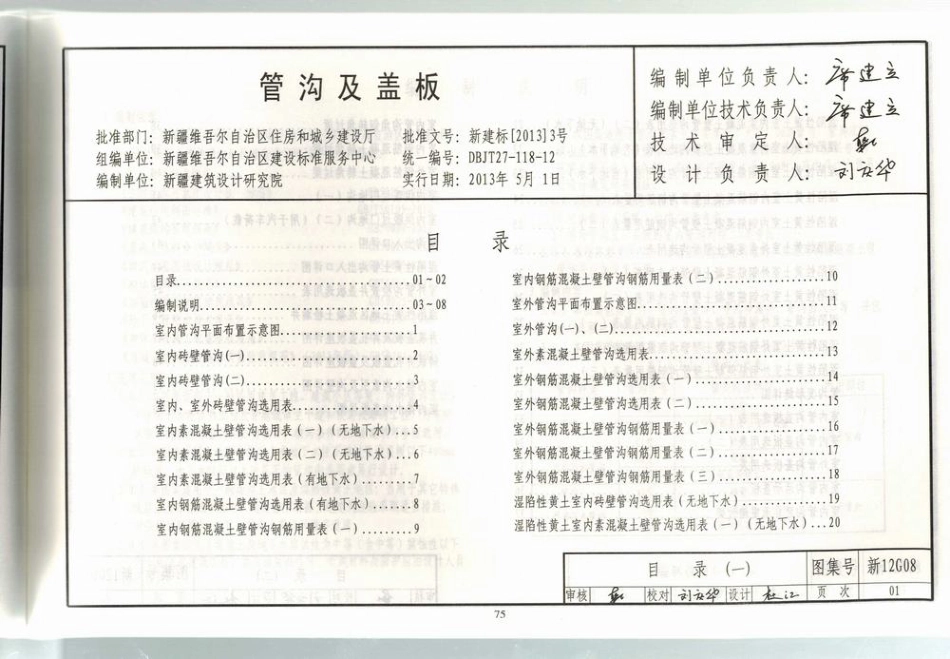 管沟及盖板
批准部门：新疆维吾尔自治区住房和城乡建设厅 批准文号：新建标[2013]3号
组编单位：新疆维吾尔自治区建设标准服务中心 统一编号：DBJT27-118-12
编制单位：新疆建筑设计研究院 实行日期：2013年 5月 1日
编制单位负责人：
编制单位技术负责人：
技术审定人：
设计负责人：
目 录
目录...........................01-02
编制说明.......................03-08
室内管沟平面布置示意图.................1
室内砖壁管沟(一)......................2
室内砖壁管沟(二)......................3
室内、室外砖壁管沟选用表...............4
室内素混凝土壁管沟选用表(一)(无地下水)...5
室内素混凝土壁管沟选用表(二)(无地下水)...6
室内素混凝土壁管沟选用表(有地下水).......7
室内钢筋混凝土壁管沟选用表(有地下水)......8
室内钢筋混凝土壁管沟钢筋用量表(一).......9
室内钢筋混凝土壁管沟钢筋用量表(二)..............10
室外管沟平面布置示意图.......................11
室外管沟(一)、(二)..........................12
室外素混凝土壁管沟选用表......................13
室外钢筋混凝土壁管沟选用表(一).................14
室外钢筋混凝土壁管沟选用表(二).................15
室外钢筋混凝土壁管沟钢筋用量表(一)..............16
室外钢筋混凝土壁管沟钢筋用量表(二)..............17
室外钢筋混凝土壁管沟钢筋用量表(三)..............18
湿陷性黄土室内砖壁管沟选用表(无地下水)...........19
湿陷性黄土室内素混凝土壁管沟选用表(一)(无地下水)...20
目 录 (一) 图集号 新12G08
审核 校对 设计 页 次 01
75